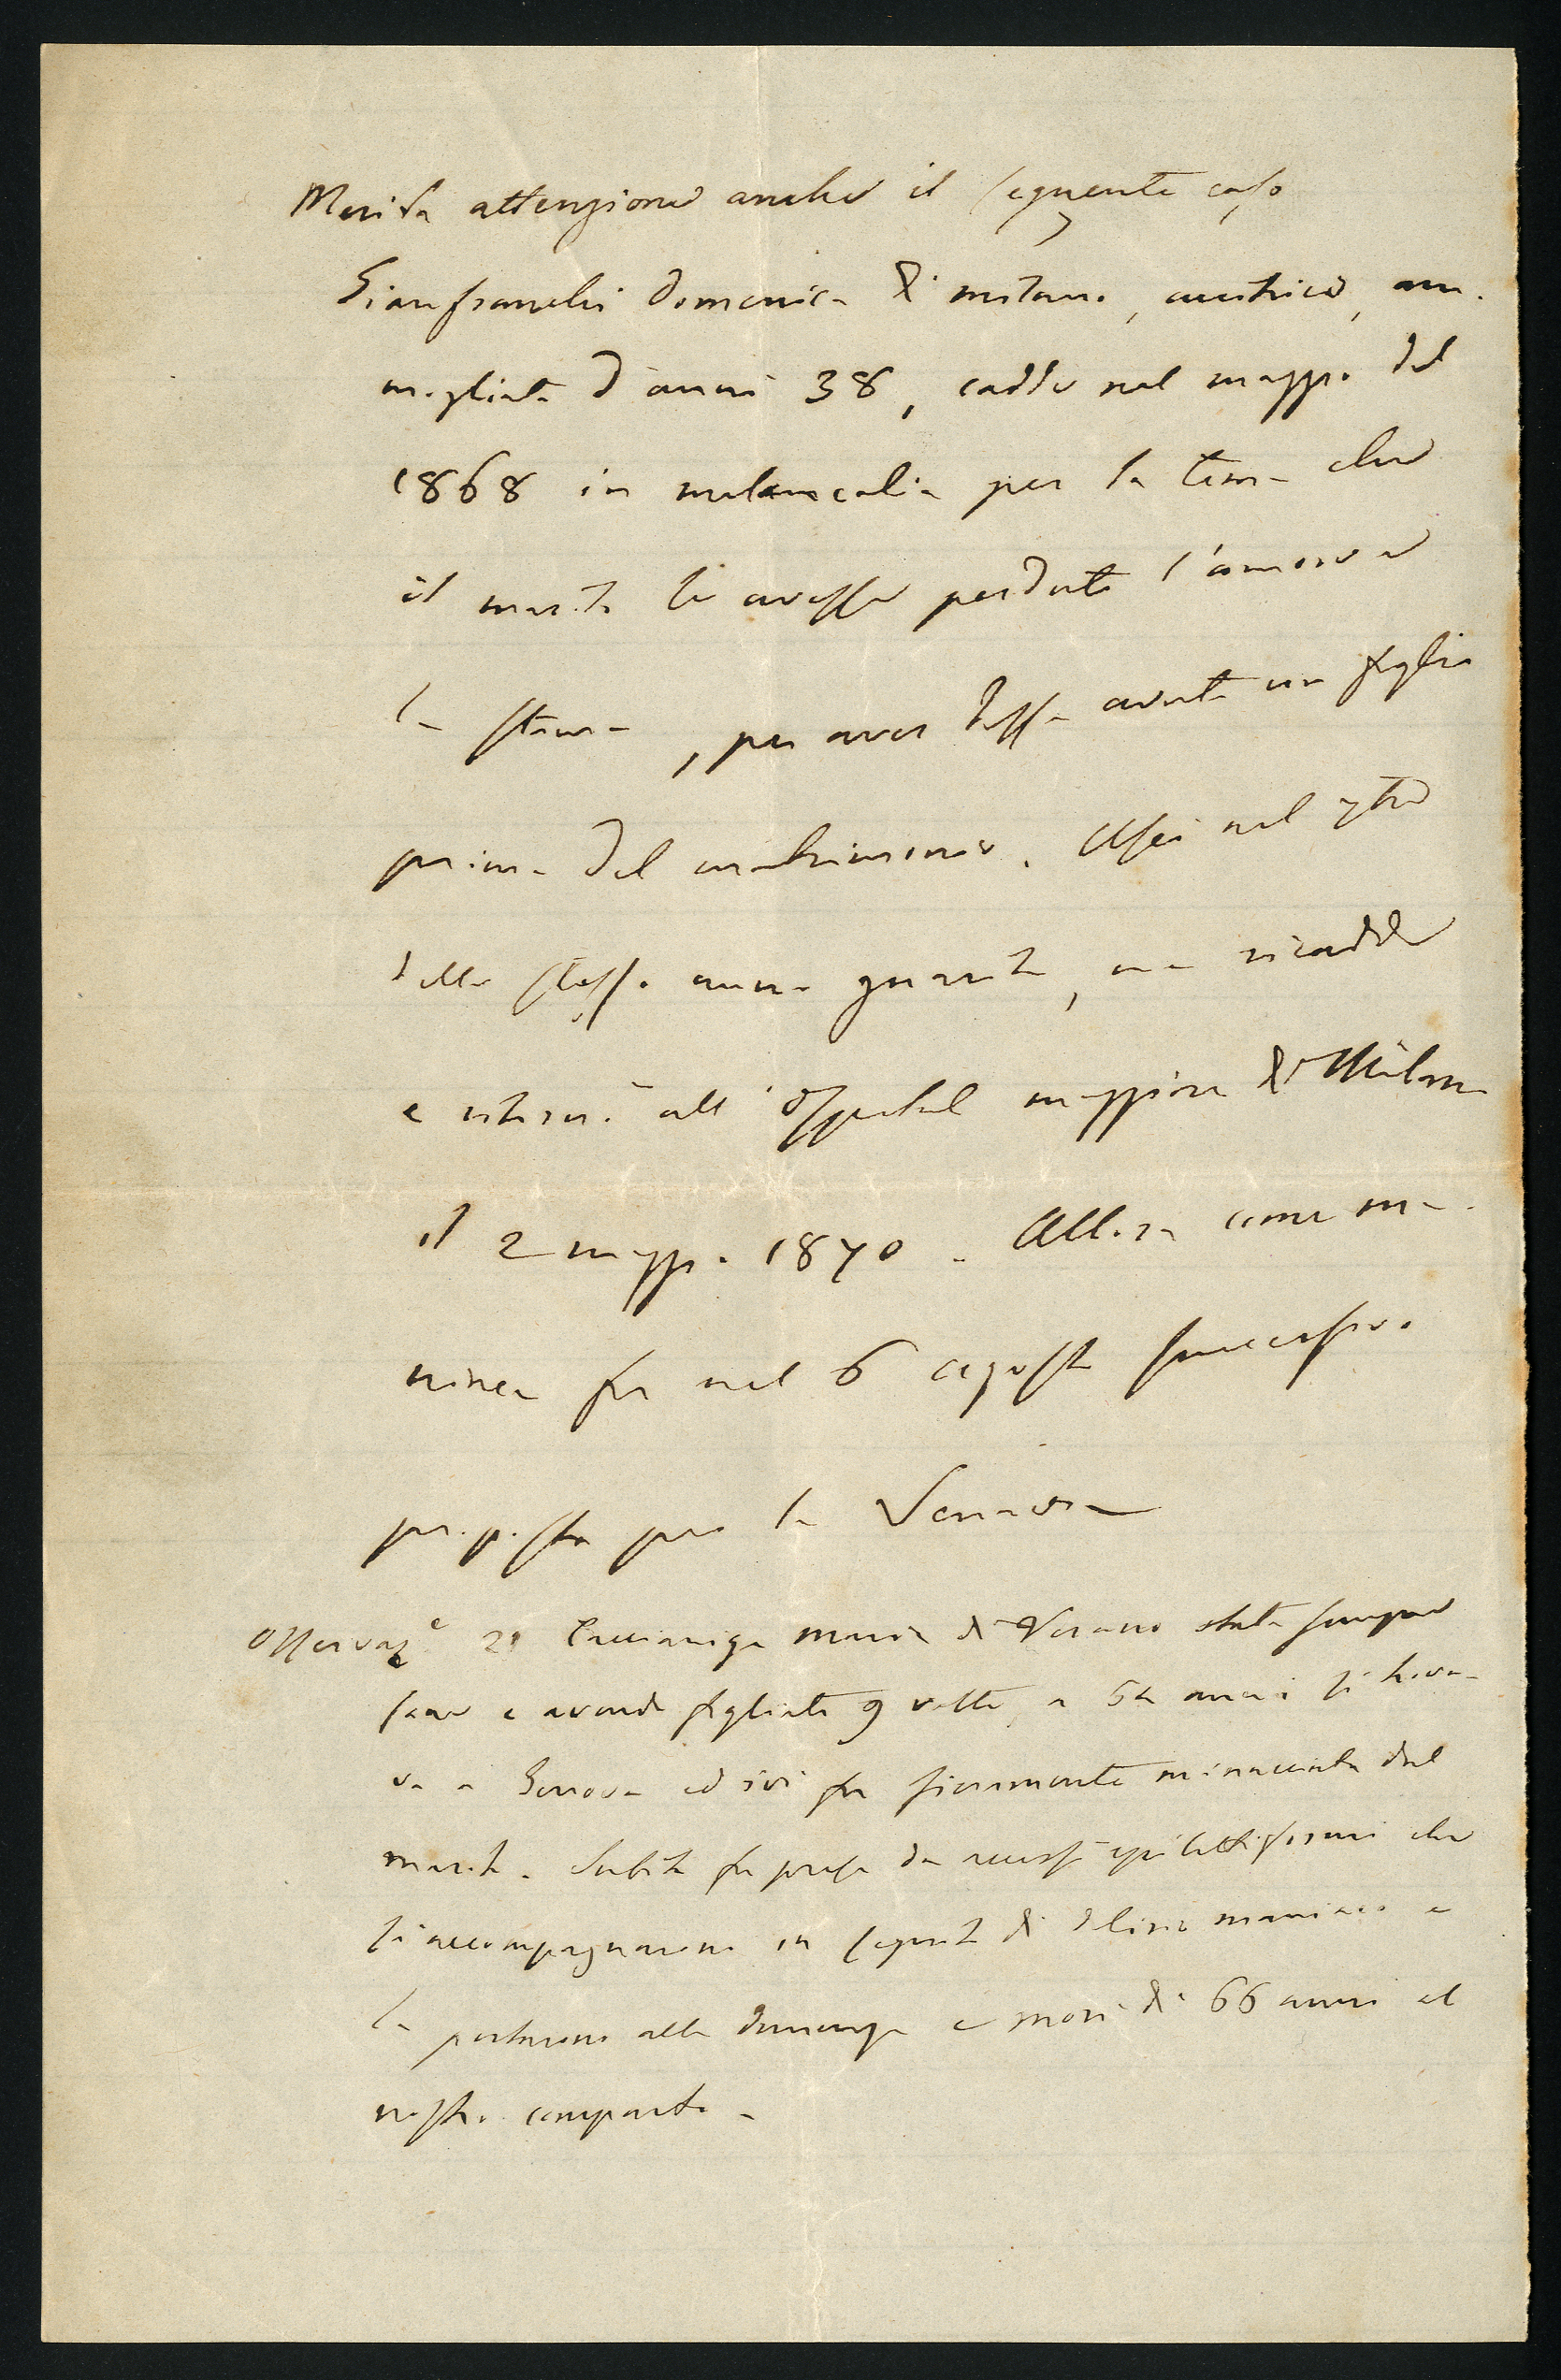 Merita attenzione anche il seguente caso
Gianfranchi Domenica di Milano, cucitrice, am-
mogliata d'anni 38, cadde nel maggio del
1868 in melancolia per la tema che
il marito le avesse perduto l'amore e
la stima, per aver dessa avuto un figlio
prima del matrimonio. Uscì nel 7bre
dello stesso anno guarita, ma ricadde
e ritornò all'Ospedal maggiore di Milano
il 2 maggio 1870. Allora come ma-
niaca fu nel 6 agosto successivo
proposta per la Senavra
Osservaze 21 Caccianiga Maria di Varano stata sempre
sana e avendo figliato 9 volte, a 52 anni si trova-
va a Genova ed ivi fu fieramente minacciata dal
marito. Subito fu presa da accessi epilettiformi che
si accompagnarono in seguito di delirio maniaco e
la portarono alla demenza e morì di 66 anni al
nostro comparto.